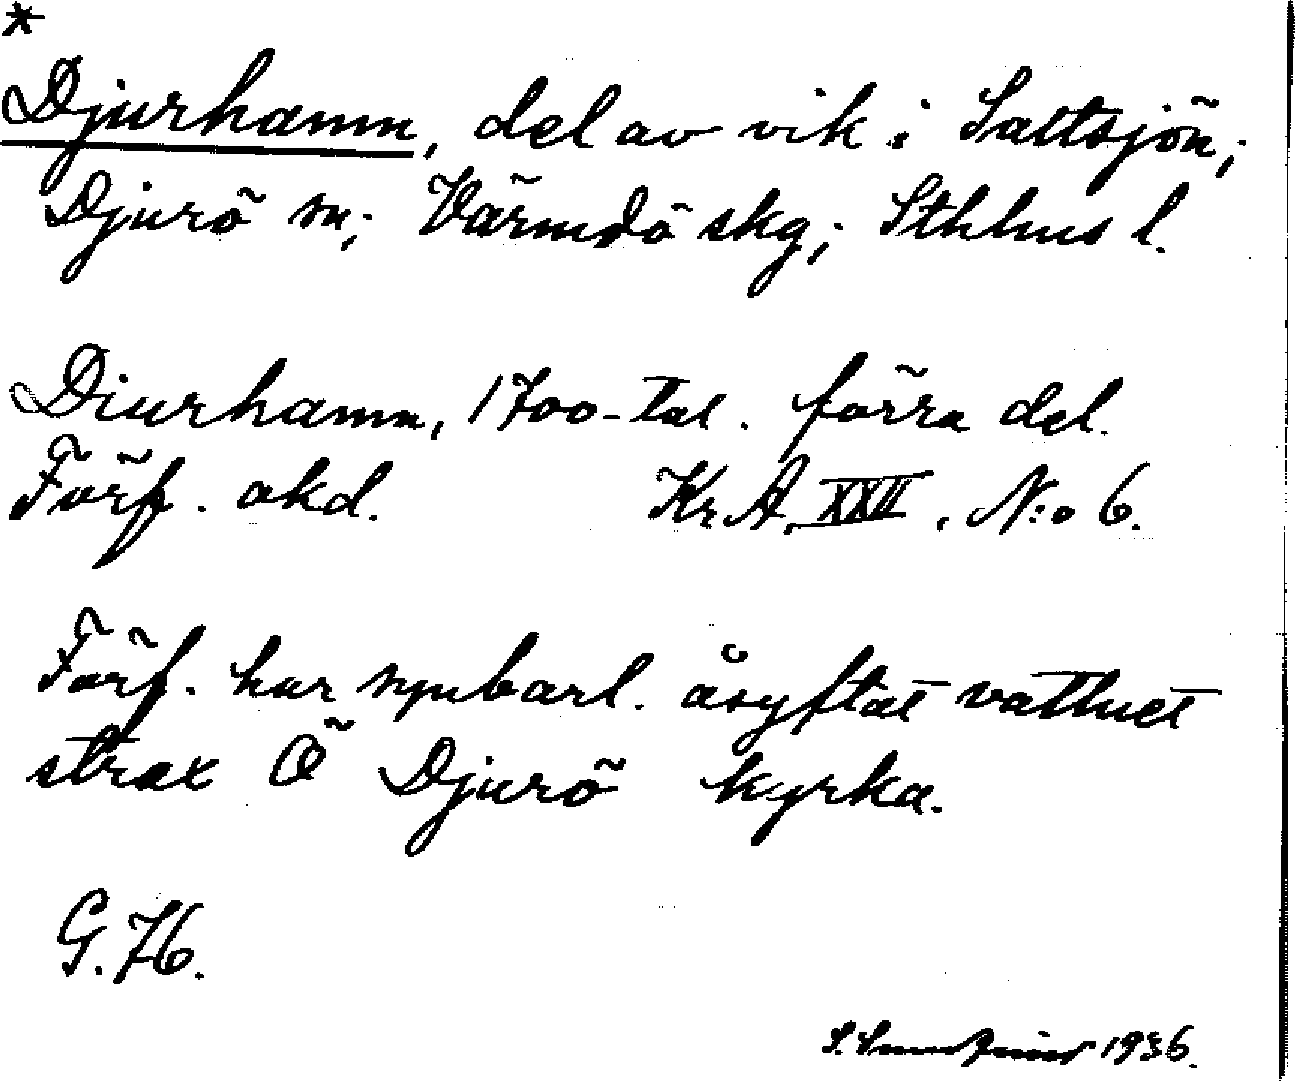 *
Djurhamn, del av vik i Saltsjön;
Djurö sn; Värmdö skg; Sthlms l.
Diurhamn, 1700-tal. förra del.
Förf. okd. Kr.A. XXII, N:o 6.
Förf. har synbarl. åsyftat vattnet
strax Ö Djurö kyrka.
G.76.
S. 1936.